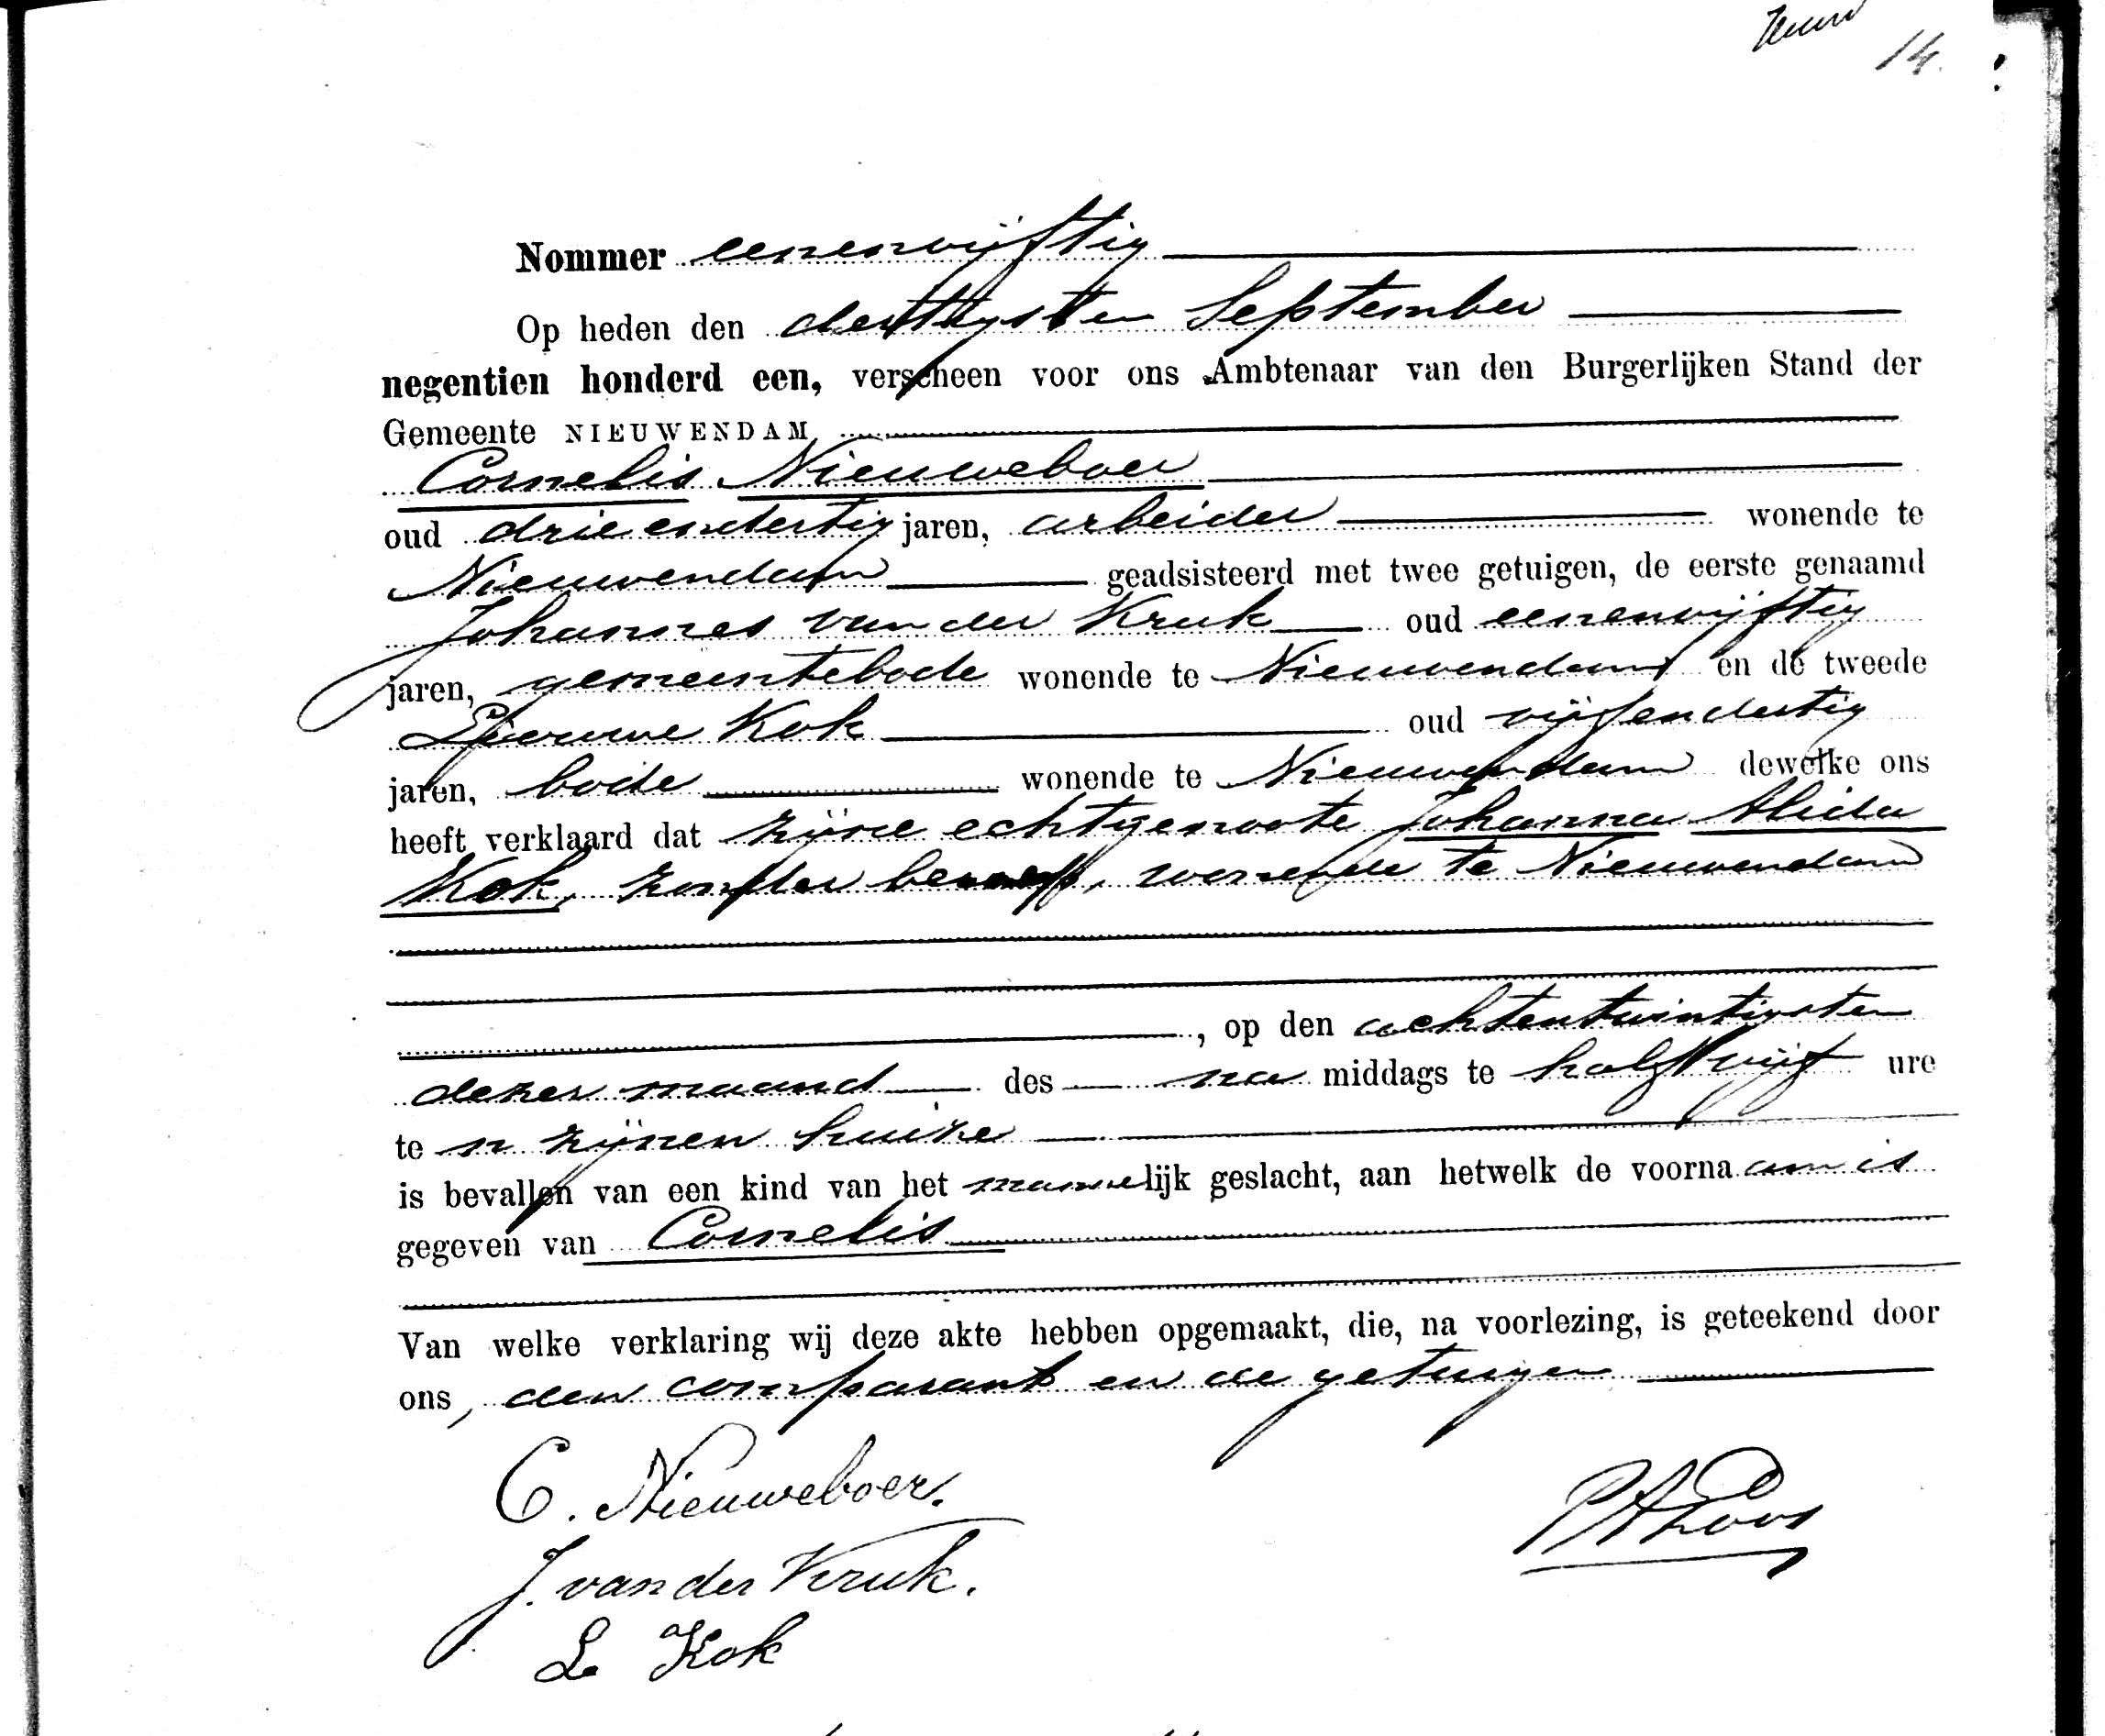 14.
Nommer eenenvijftig
Op heden den dertigsten September
negentien honderd een, verscheen voor ons Ambtenaar van den Burgerlijken Stand der
Gemeente NIEUWENDAM
Cornelis Nieuweboer
oud drieendertig jaren, arbeider wonende te
Nieuwendam geadsisteerd met twee getuigen, de eerste genaamd
Johannes van der Kruk oud eenenvijftig
jaren, gemeentebode wonende te Nieuwendam en de tweede
Kok oud vijfendertig
jaren, bode wonende te Nieuwendam dewelke ons
heeft verklaard dat zijne echtgenoote Johanna Alida
Kok, zonder beroep, wonende te Nieuwendam
, op den achtentwintigsten
dezer maand des na middags te half vijf ure
te n zijnen huize
is bevallen van een kind van het mannelijk geslacht, aan hetwelk de voorna am is
gegeven van Cornelis
Van welke verklaring wij deze akte hebben opgemaakt, die, na voorlezing, is geteekend door
ons, den comparant en de getuigen
C. Nieuweboer.
J. van der Kruk.
L. Kok